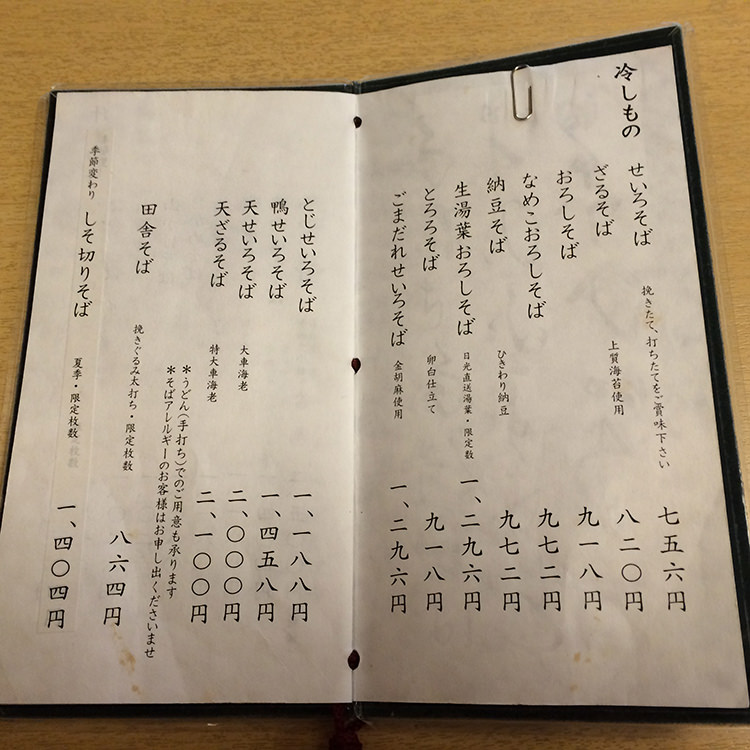 冷しもの
せいろそば 挽きたて、打ちたてをご賞味下さい 七五六円
ざるそば 上質海苔使用 八二〇円
おろしそば 九一八円
なめこおろしそば 九七二円
納豆そば ひきわり納豆 九七二円
生湯葉おろしそば 日光直送湯葉・限定数 一、二九六円
とろろそば 卵白仕立て 九一八円
ごまだれせいろそば 金胡麻使用 一、二九六円
とじせいろそば 一、一八八円
鴨せいろそば 一、四五八円
天せいろそば 大車海老 二、〇〇〇円
天ざるそば 特大車海老 二、一〇〇円
＊うどん（手打ち）でのご用意も承ります
＊そばアレルギーのお客様はお申し出くださいませ
田舎そば 挽きぐるみ太打ち・限定枚数 八六四円
季節変わり しそ切りそば 夏季・限定枚数 一、四〇四円